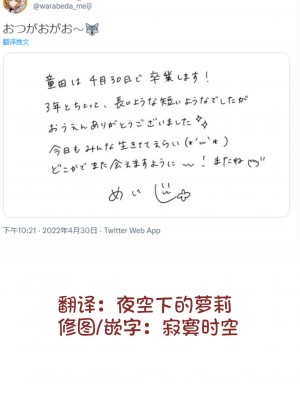 @warabeda_meiji
おつがおがお～
翻译推文
童田は4月30日で卒業します！
3年とちょっと、長いような短いようなでしたが
おうえんありがとうございました
今日もみんな生きててえらい(*'ω'*)
どこかでまた会えますように〜！またね
めいじ
下午10:21 · 2022年4月30日 · Twitter Web App
翻译：夜空下的萝莉
修图/嵌字：寂寞时空